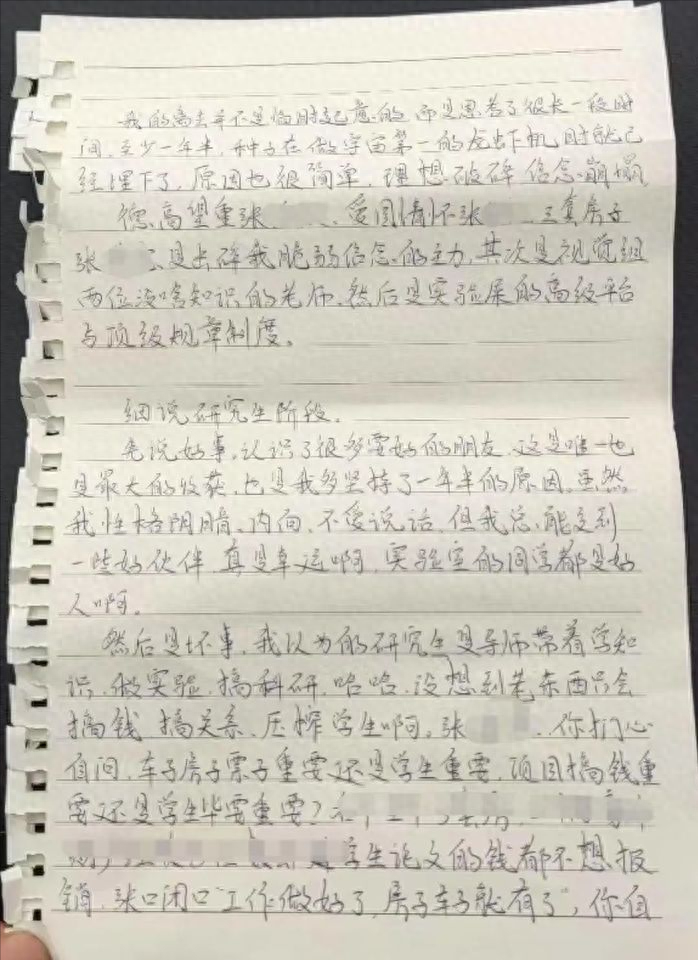 我的离去并不是临时起意的，而是思考了很长一段时
间，至少一年半，种子在做宇宙第一的龙虾机时就已
经埋下了，原因也很简单，理想破碎 信念崩塌
德高望重张 、爱国情怀张 、三套房子
张 是击碎我脆弱信念的主力，其次是视觉组
两位没啥知识的老师、然后是实验展的高级平台
与顶级规章制度。
细说研究生阶段。
先说好事，认识了很多要好的朋友，这是唯一也
是最大的收获，也是我多坚持了一年半的原因。虽然
我性格阴暗、内向、不爱说话，但我总能交到
一些好伙伴，真是幸运啊，实验室的同学都是好
人啊。
然后是坏事，我以为的研究生是导师带着学知
识，做实验，搞科研，哈哈，没想到老东西只会
搞钱 搞关系、压榨学生啊。张 ，你扪心
自问，车子房子票子重要还是学生重要，项目搞钱重
要还是学生毕业重要？
学生论文的钱都不想报
销，张口闭口“工作做好了，房子车子就有了”，你自